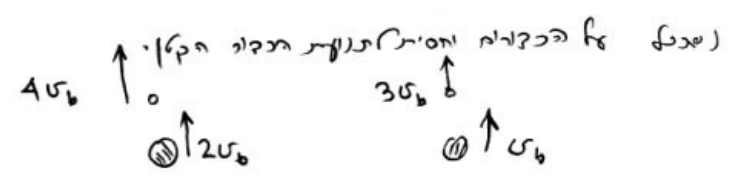 נסתכל על הכדורים יחסית לתנועת הכדור הקטן.
4υ_b 3υ_b
2υ_b υ_b